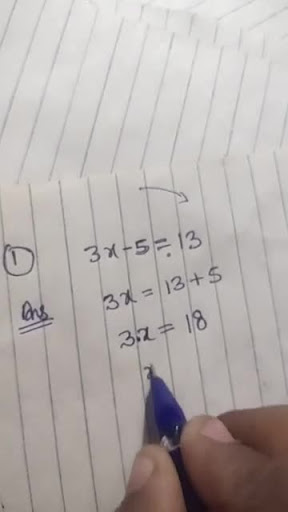 ① 3x-5=13
Ans 3x=13+5
3x=18
x